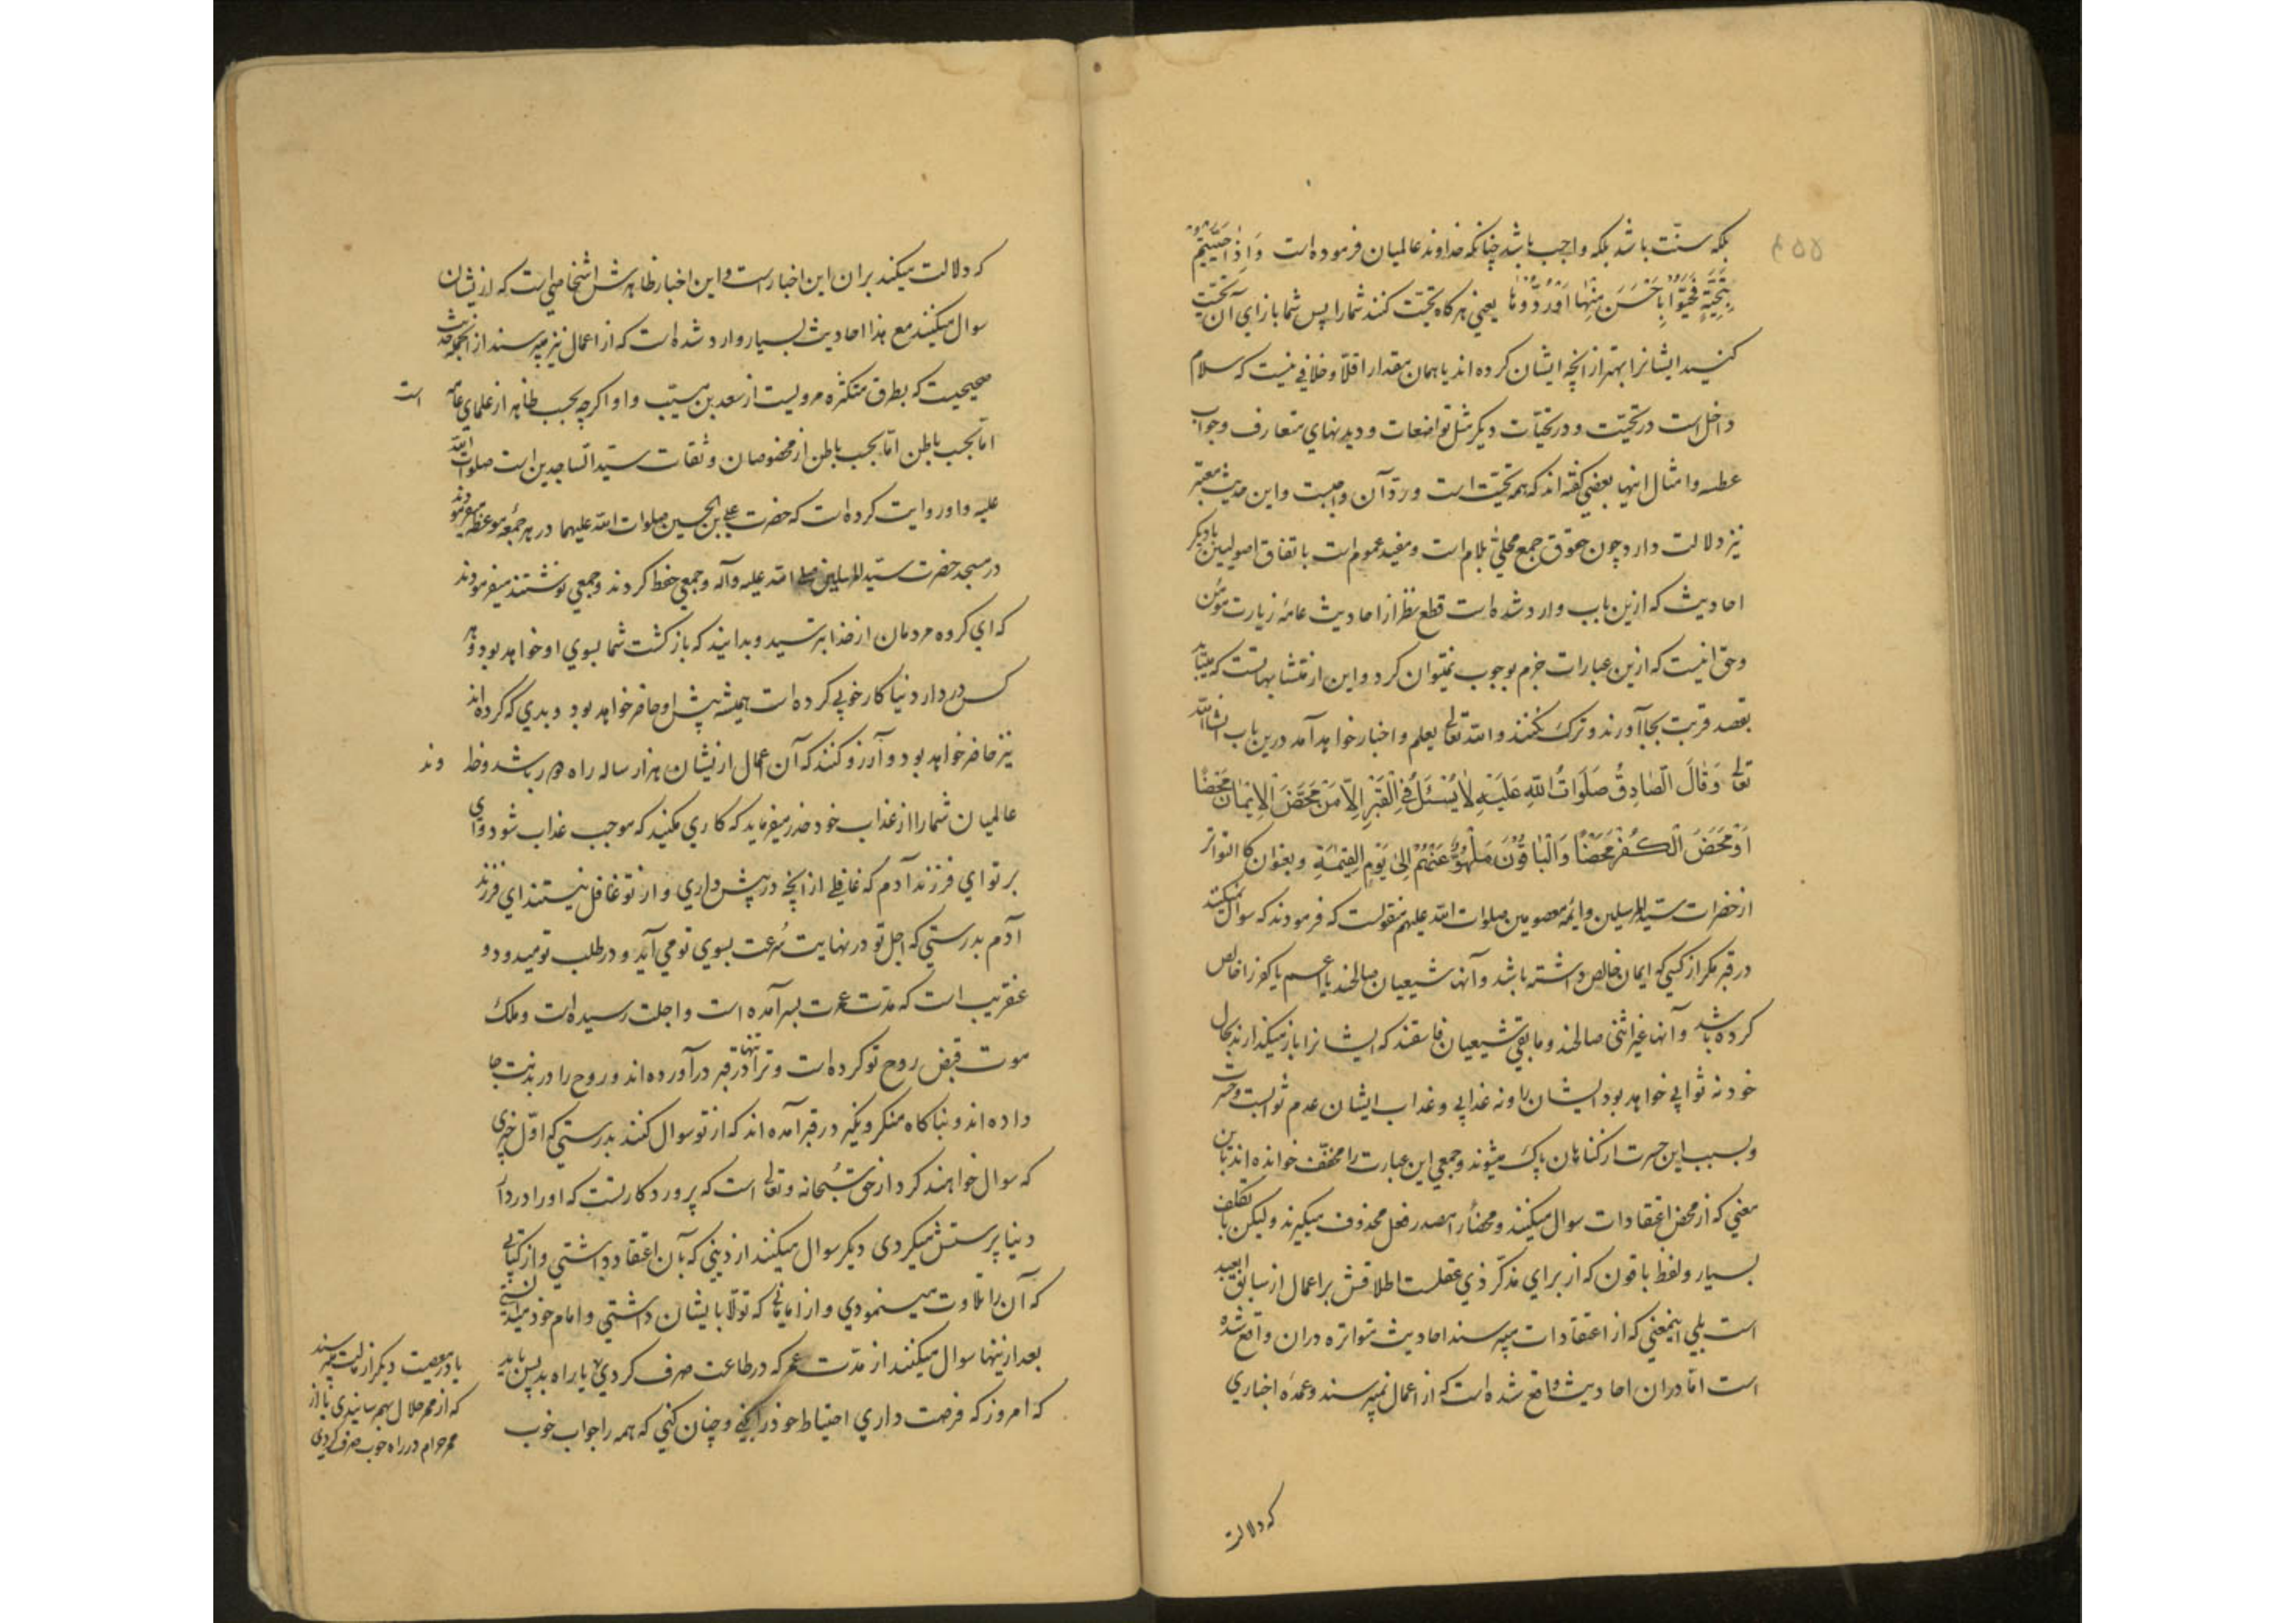 بلکه سنّت باشد بلکه واجب باشد چنانکه خداوند عالمیان فرموده است وَاِذٰا حُیّیتُم
بِتَحِیَّةٍ فَحَیّوُا بِاَحْسَنَ مِنْهٰا اَوْرُدُّوهٰا یعنی هرکاه تحیّت کنند شما را پس شما بازای آن تحیّت
کنید ایشانرا بهتر از آنچه ایشان کرده اند یا همان مقدار اقلاّ و خلافی نیست که سلام
داخل است در تحیّت و در تحیّات دیکر مثل تواضعات و دیدنهای متعارف و جواب
عطسه و امثال اینها بعضی گفته اند که همه تحیّت است و ردّ آن واجبست و این حدیث معتبر
نیز دلالت دارد چون حقوق جمع محلیٰ بلام است و مفید عموم است باتفاق اصولیین با دیکر
احادیث که ازین باب وارد شده است قطع نظر از احادیث عامهٔ زیارت مؤمن
و حق انیست که ازین عبارات جزم بوجوب نمیتوان کرد و این از متشابهاتست که میباید
بقصد قربت بجا آورند و ترک نکنند والله تعالی یعلم و اخبار خواهد آمد درین باب انشاالله
تعالی وَقٰالَ الصّٰادِقُ صَلَوٰاتُ اللهِ عَلَیْهِ لٰا یُسْئَلُ فِی الْقَبْرِ اِلّٰا مَنْ مَحَضَ الْایمٰانَ مَحْضًا
اَوْ مَحَضَ الْکُفْرَ مَحْضًا وَالْبٰاقُوْنَ مَلْهُوٌّ عَنْهُمْ اِلیٰ یَوْمِ القِیٰمَةِ و بعنوان کالتواتر
از حضرات سیّد المرسلین و ائمه معصومین صلوات الله علیهم منقولست که فرمودند که سوال نمیکنند
در قبر مکر از کسی که ایمان خالص داشته باشد و آنها شیعیان صالحند یا اعم یا کفر را خالص
کرده باشد و آنها غیر اثنی صالحند و ما بقی شیعیان فاسقند که ایشانرا باز میکذارند بحال
خود نه ثوابی خواهد بود ایشان را و نه عذابی و عذاب ایشان عدم ثوابست و حسرت
و بسبب این حسرت از کناهان پاک میشوند و جمعی این عبارت را مخفّف خوانده اند باین
معنی که از محض اعتقادات سوال میکنند و محضًا را مصدر فعل محذوف میکیرند و لیکن با تکلف
بسیار و لفظ باقون که از برای مذکر ذی عقلست اطلاقش بر اعمال از سابق ابعد
است بلی اینمعنی که از اعتقادات میپرسند احادیث متواتره دران واقع شده
است امّا دران احادیث واقع شده است که از اعمال نمیپرسند و عمدهٔ اخباری
که دلالت
که دلالت میکند بران این اخبار است و این اخبار ظاهرش اشخاصی است که ازیشان
سوال میکنند مع هذا احادیث بسیار وارد شده است که از اعمال نیز میپرسند از انجمله حدیث
صحیحیت که بطرق متکثره مرویست از سعد بن مسیّب و او اکرچه بحسب ظاهر از علمای عامه است
امّا بحسب باطن امّا بحسب باطن از مخصوصان و ثقات سیّد الساجدین است صلوات الله
علیه و او روایت کرده است که حضرت علی بن الحسین صلوات الله علیهما در هر جمعه موعظه میفرمودند
در مسجد حضرت سیّد المرسلین صلی الله علیه وآله و جمعی حفظ کردند و جمعی نوشتند میفرمودند
که ای کروه مردمان از خدا بترسید و بدانید که بازکشت شما بسوی او خواهد بود و هر
کس در دار دنیا کار خوبی کرده است همیشه پیش او حاضر خواهد بود و بدی که کرده اند
نیز حاضر خواهد بود و آرزو کنند که آن اعمال ازیشان هزار ساله راه دور باشد و خداوند
عالمیان شما را از عذاب خود حذر میفرماید که کاری مکنید که موجب عذاب شود وای
بر تو ای فرزند آدم که غافلی از آنچه در پیش داری و از تو غافل نیستند ای فرزند
آدم بدرستی که اجل تو در نهایت سُرعت بسوی تو می آید و در طلب تو میدود و
عنقریب است که مدّت عمرت بسر آمده است و اجلت رسیده است و ملک
موت قبض روح تو کرده است و ترا تنها در قبر درآورده اند و روح را در بدنت جا
داده اند و بناکاه منکر و نکیر در قبر آمده اند که از تو سوال کنند بدرستی که اوّل چیزی
که سوال خواهند کرد از حق سُبحانه و تعالی است که پروردکارتست که او را در دار
دنیا پرستش میکردی دیکر سوال میکنند از دینی که بآن اعتقاد داشتی و از کتابی
که آن را تلاوت مینمودی و از امامانی که تولّا بایشان داشتی و امام خود میدانستی
بعد ازینها سوال میکنند از مدّت عمر که در طاعت صرف کردی یا براه بد پس باید
که امروز که فرصت داری احتیاط خود را بکنی و چنان کنی که همه را جواب خوب
یا در معصیت دیکر از میپرسند
که از ممر حلال بهم رسانیدی یا از
ممر حرام در راه خوب صرف کردی